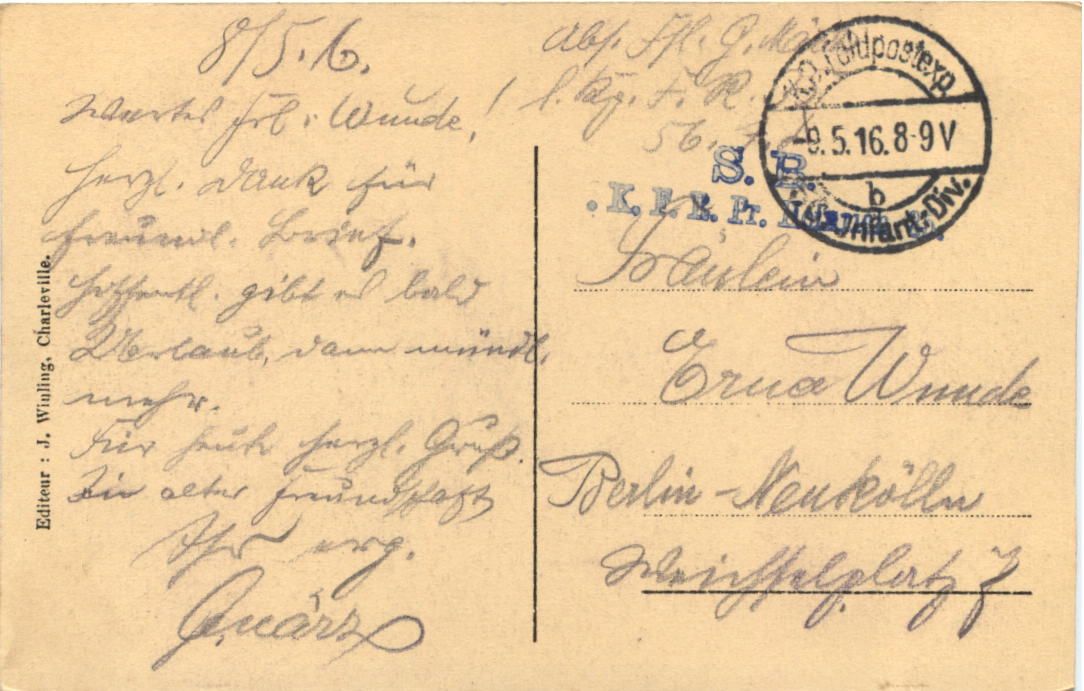 8/5.16.
Wertes Frl. Wunde!
Herzl. Dank für
freundl. Brief.
Hoffentl. gibt es bald
Urlaub, dann mündl.
mehr.
Für heute herzl. Gruß.
In alter Freundschaft
Ihr erg.
G. März
Editeur : J. Winling, Charleville.
Abs. G. März
56.
K.D. Feldpostexp.
9.5.16.8-9V
b
Infant.-Div.
S. B.
Fräulein
Erna Wunde
Berlin-Neukölln
Weichselplatz 7